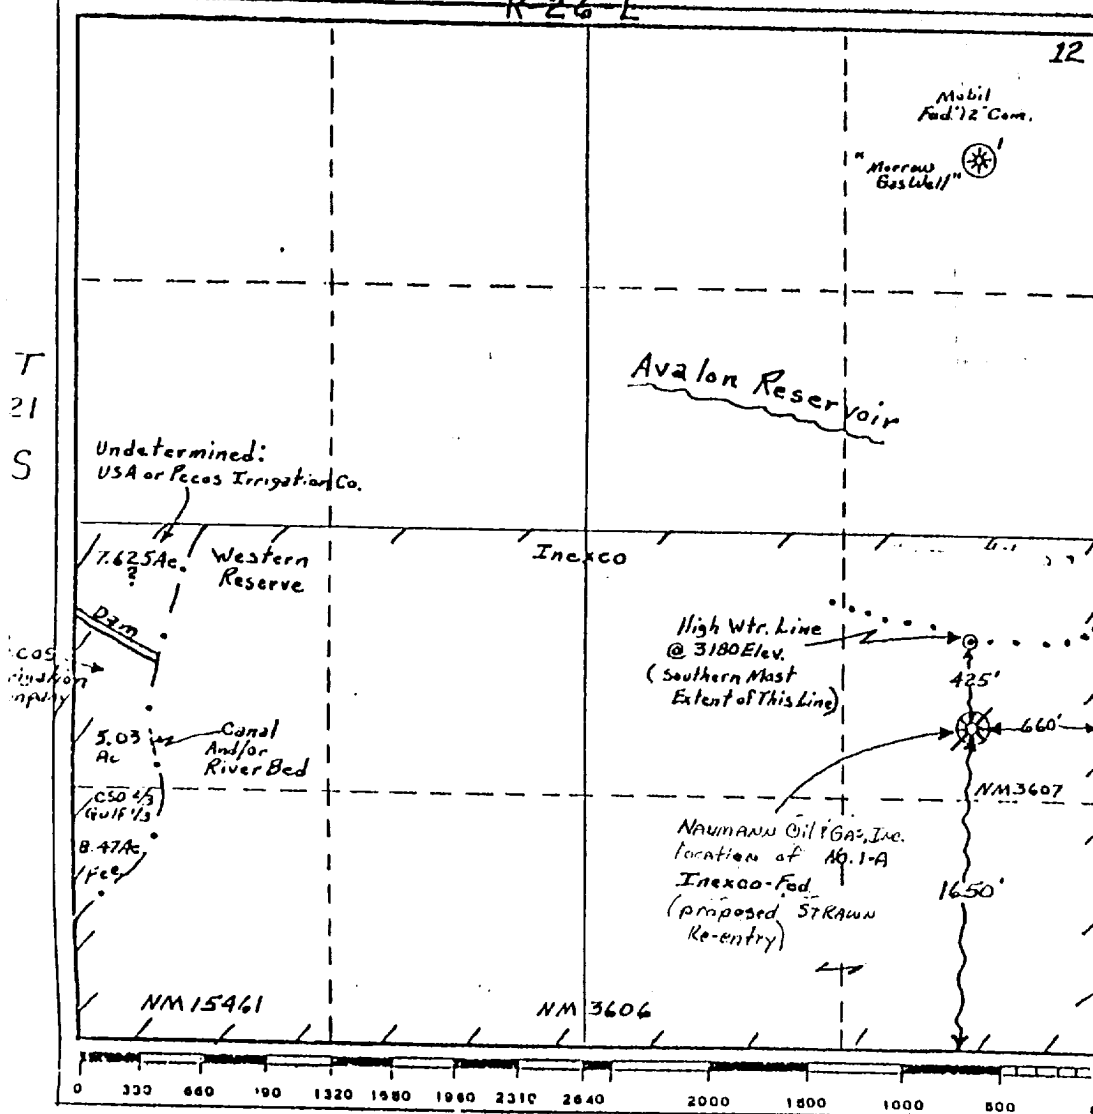 R-26-E
12
Mobil
Fed."12"Com.
1
"Morrow
Gas Well"
T
21
S
Avalon Reservoir
Undetermined:
USA or Pecos Irrigation Co.
7.625Ac.
?
Western
Reserve
Inexco
Dam
High Wtr. Line
@ 3180 Elev.
(Southern Most
Extent of This Line)
425'
660'
5.03
Ac
Canal
And/or
River Bed
NM3607
CSO 2/3
Gulf 1/3
8.47Ac.
Fee
NAUMANN Oil & GAS, Inc.
location of No. 1-A
Inexco-Fed
(proposed STRAWN
Re-entry)
1650'
NM 15461
NM 3606
0 330 660 990 1320 1650 1980 2310 2640 2000 1500 1000 500